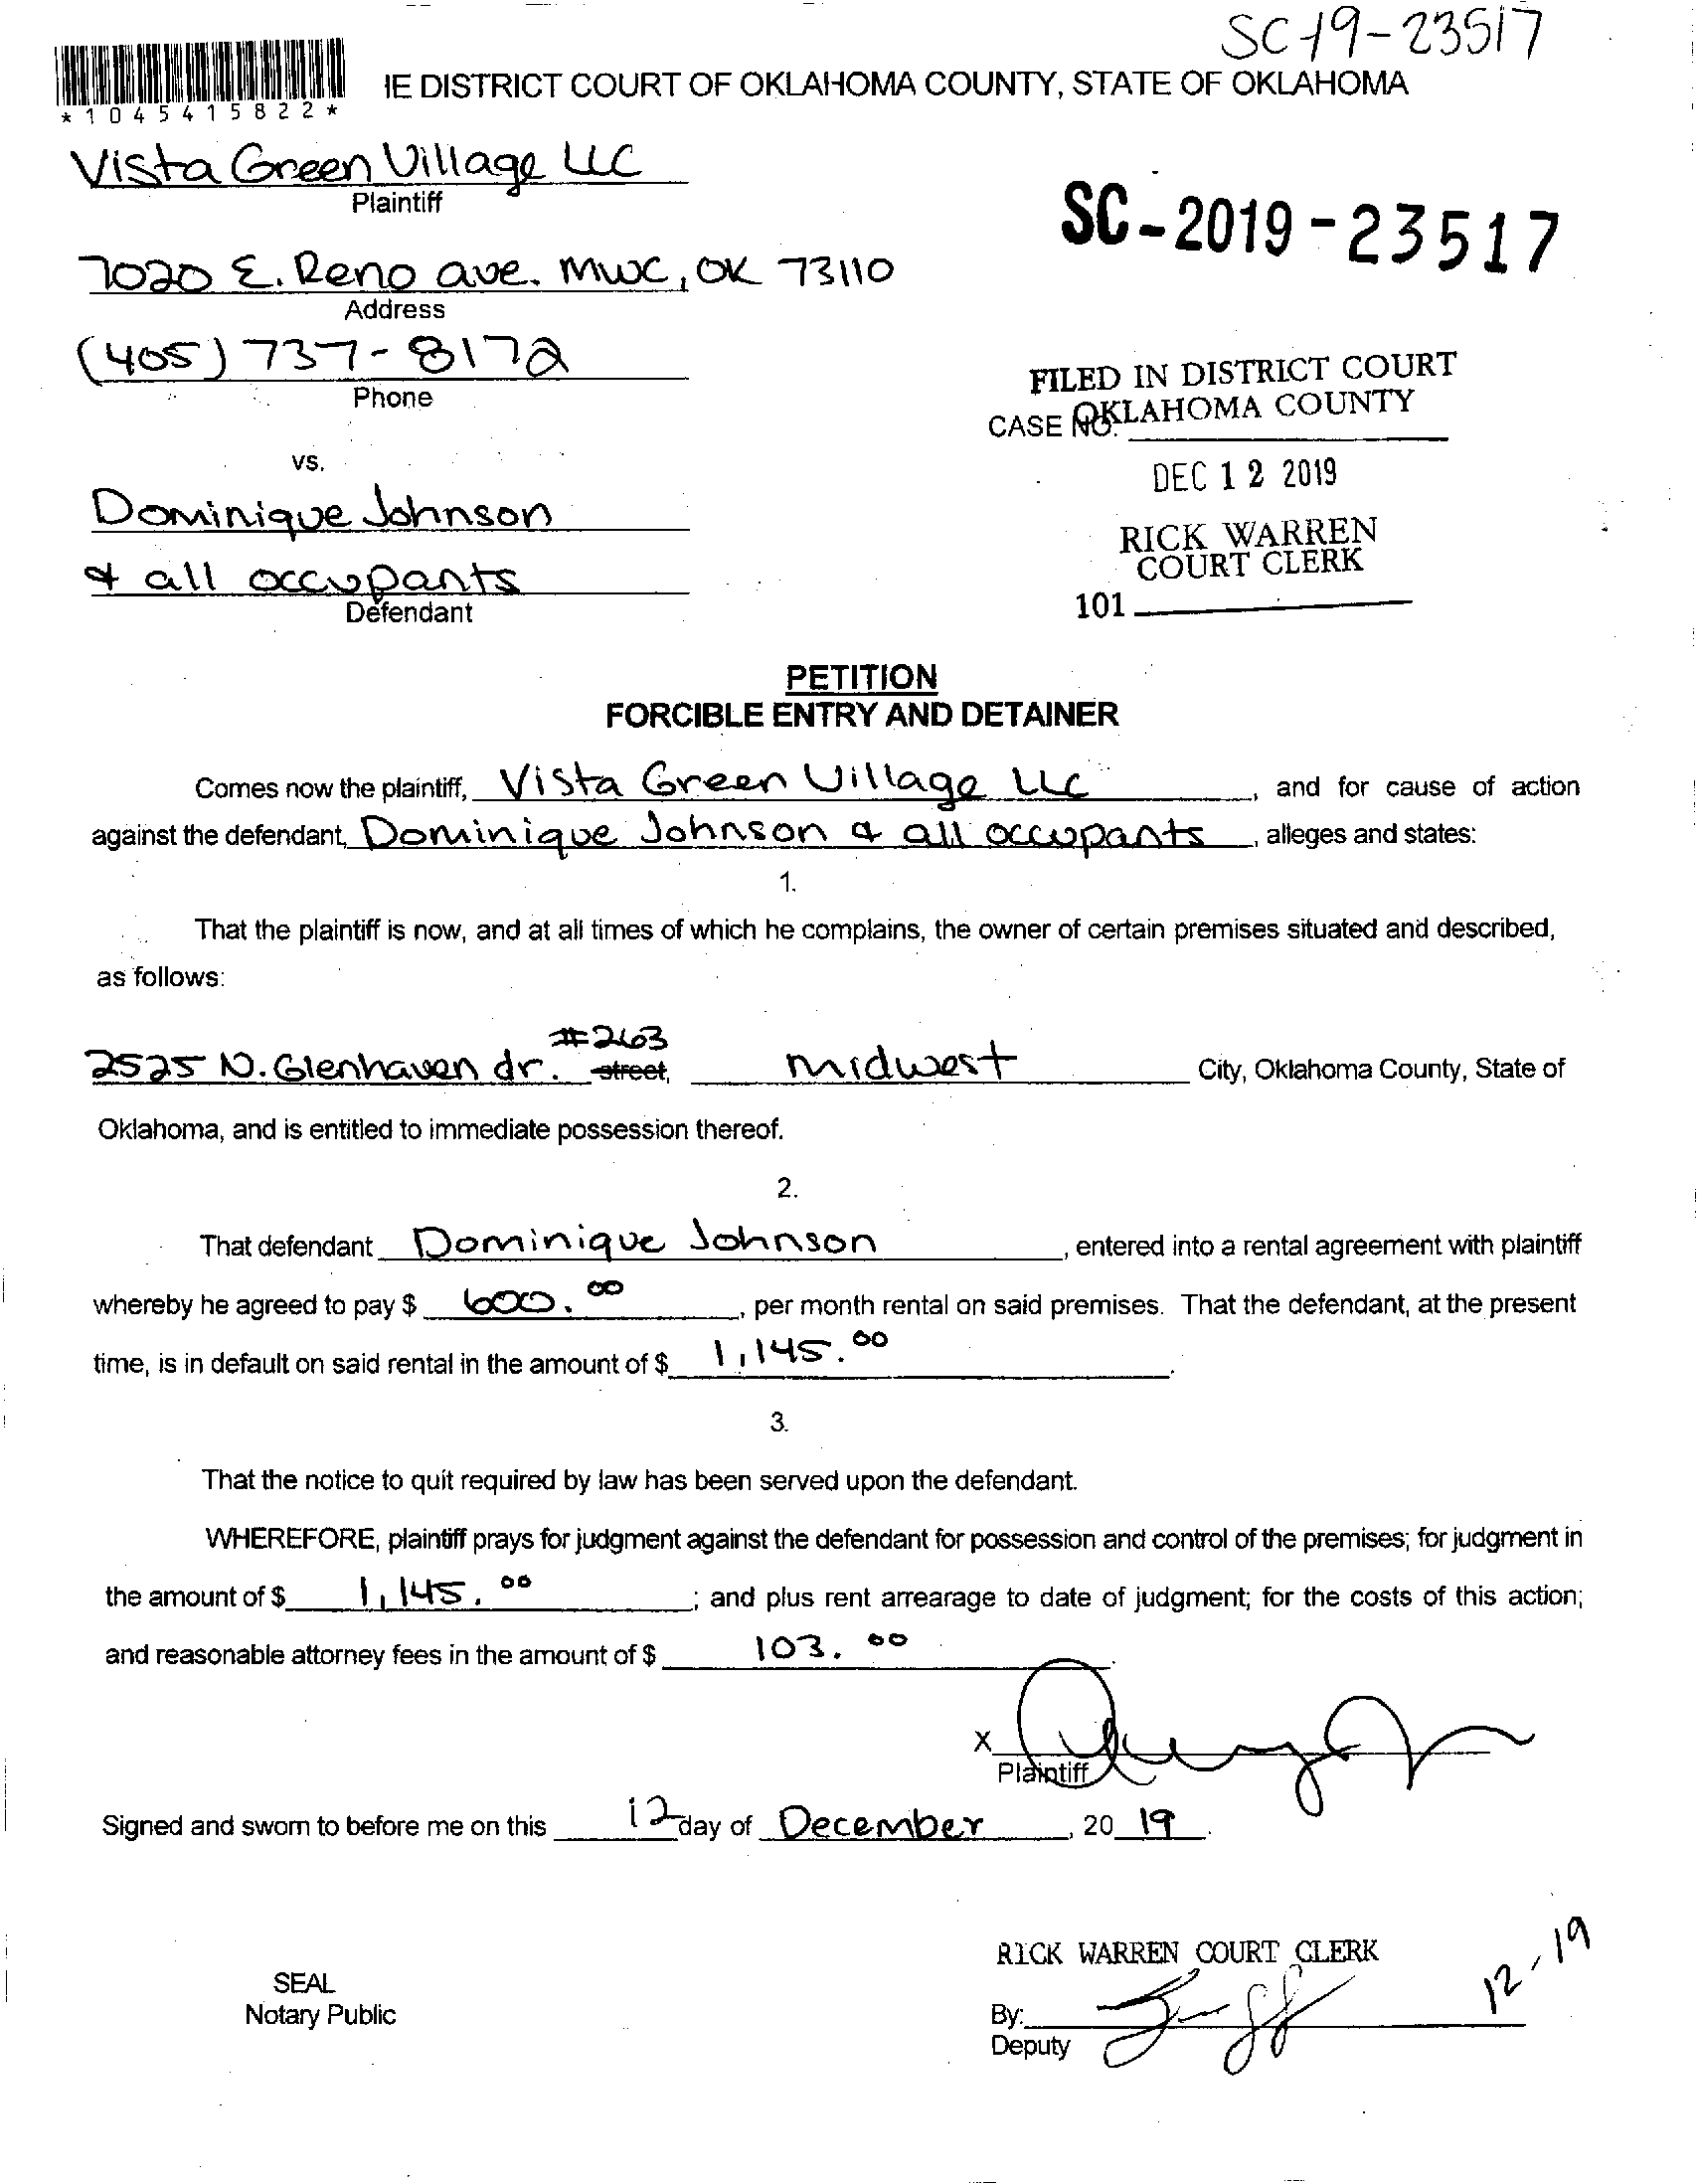 SC-19-23517
IE DISTRICT COURT OF OKLAHOMA COUNTY, STATE OF OKLAHOMA
*1045415822*
Vista Green Village LLC
Plaintiff
SC-2019-23517
7020 E. Reno ave. MWC, OK 73110
Address
(405) 737-8172
Phone
FILED IN DISTRICT COURT
OKLAHOMA COUNTY
CASE NO.
vs.
DEC 12 2019
Dominique Johnson
RICK WARREN
COURT CLERK
& all occupants
Defendant
101
PETITION
FORCIBLE ENTRY AND DETAINER
Comes now the plaintiff, Vista Green Village LLC, and for cause of action
against the defendant, Dominique Johnson & all occupants, alleges and states:
1.
That the plaintiff is now, and at all times of which he complains, the owner of certain premises situated and described,
as follows:
#263
2525 N. Glenhaven dr. street, midwest City, Oklahoma County, State of
Oklahoma, and is entitled to immediate possession thereof.
2.
That defendant Dominique Johnson, entered into a rental agreement with plaintiff
whereby he agreed to pay $ 600.00, per month rental on said premises. That the defendant, at the present
time, is in default on said rental in the amount of $ 1,145.00.
3.
That the notice to quit required by law has been served upon the defendant.
WHEREFORE, plaintiff prays for judgment against the defendant for possession and control of the premises; for judgment in
the amount of $ 1,145.00; and plus rent arrearage to date of judgment; for the costs of this action;
and reasonable attorney fees in the amount of $ 103.00
X
Plaintiff
Signed and sworn to before me on this 12 day of December, 20 19.
RICK WARREN COURT CLERK
12-19
SEAL
Notary Public
By:
Deputy